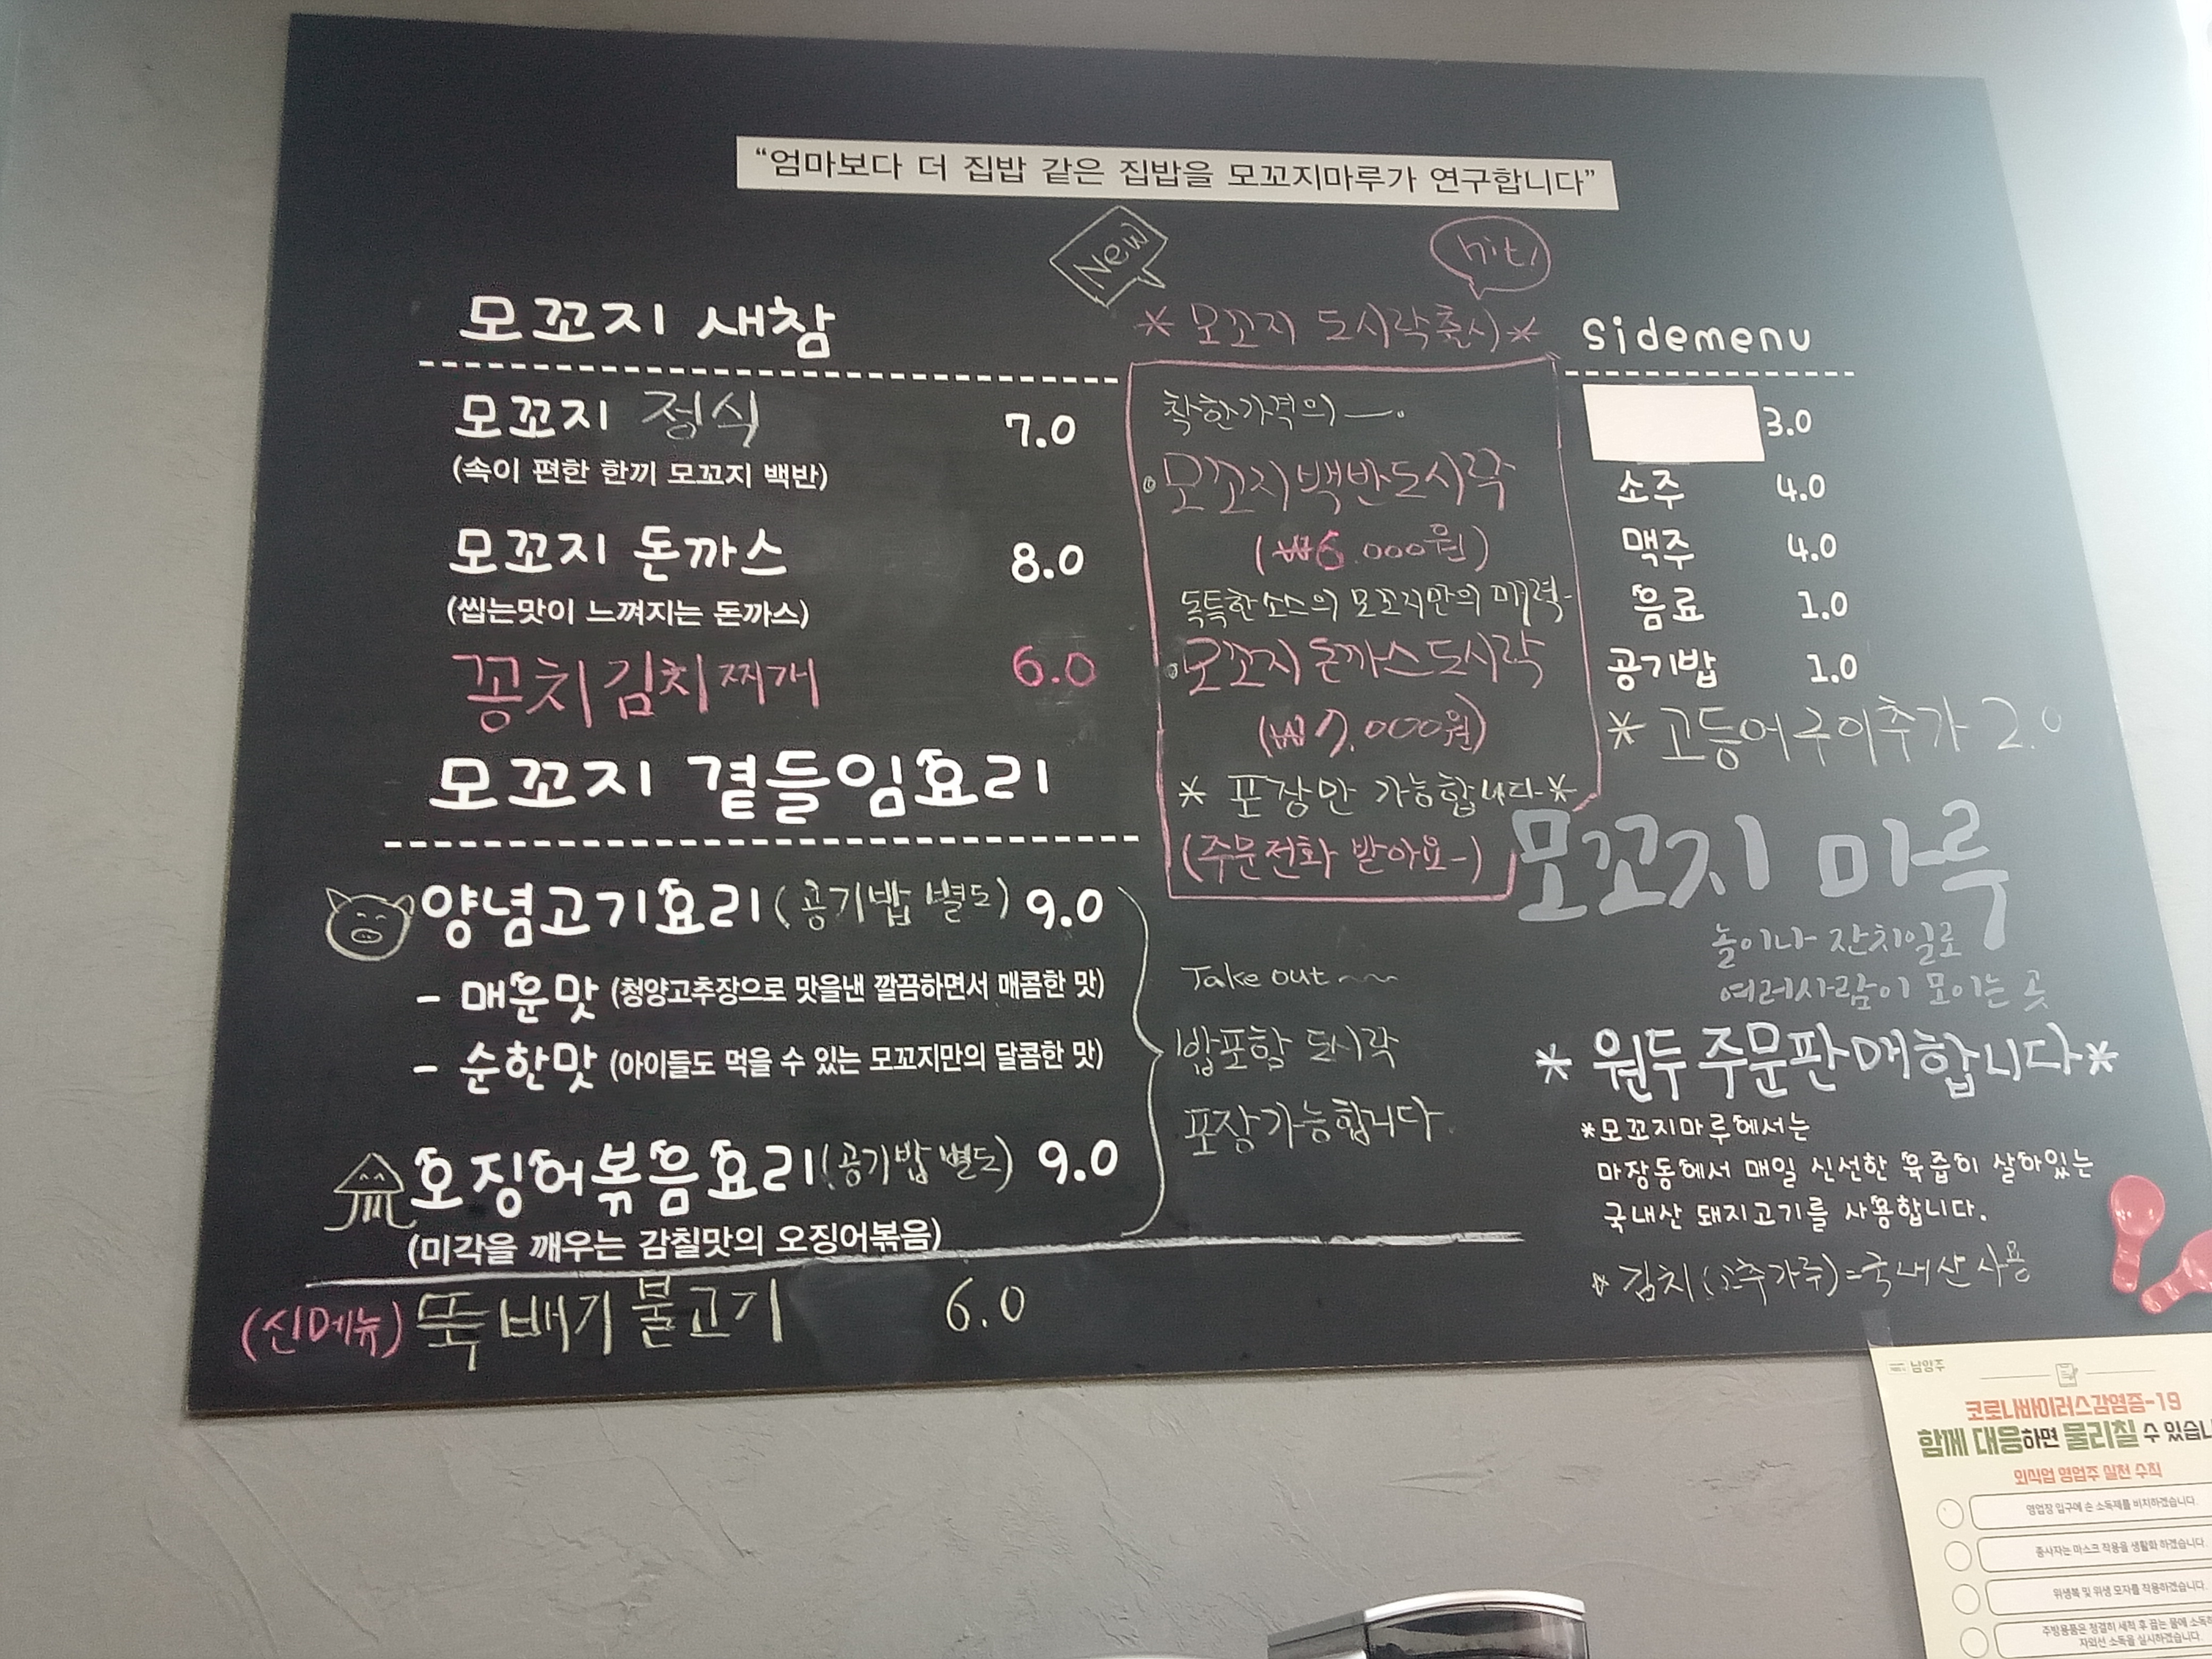 “엄마보다 더 집밥 같은 집밥을 모꼬지마루가 연구합니다”
모꼬지 새참
모꼬지 정식 7.0
(속이 편한 한끼 모꼬지 백반)
모꼬지 돈까스 8.0
(씹는맛이 느껴지는 돈까스)
꽁치김치찌개 6.0
모꼬지 곁들임요리
양념고기요리(공기밥 별도) 9.0
- 매운맛 (청양고추장으로 맛을낸 깔끔하면서 매콤한 맛)
- 순한맛 (아이들도 먹을 수 있는 모꼬지만의 달콤한 맛)
오징어볶음요리(공기밥 별도) 9.0
(미각을 깨우는 감칠맛의 오징어볶음)
(신메뉴) 뚝배기불고기 6.0
New
hit!
* 모꼬지 도시락출시 *
착한가격의 —.
모꼬지백반도시락
(₩6.000원)
독특한소스의 모꼬지만의 매력-
모꼬지돈까스도시락
(₩7.000원)
* 포장만 가능합니다-*
(주문전화 받아요-)
Take out ~~
밥포함 도시락
포장가능합니다.
sidemenu
3.0
소주 4.0
맥주 4.0
음료 1.0
공기밥 1.0
* 고등어구이추가 2.0
모꼬지 마루
놀이나 잔치일로
여러사람이 모이는 곳
* 원두주문판매합니다*
*모꼬지마루에서는
마장동에서 매일 신선한 육즙이 살아있는
국내산 돼지고기를 사용합니다.
* 김치(고추가루)=국내산사용
남양주
코로나바이러스감염증-19
함께 대응하면 물리칠 수 있습니
외식업 영업주 실천 수칙
영업장 입구에 손 소독제를 비치하겠습니다.
종사자는 마스크 착용을 생활화 하겠습니다.
위생복 및 위생 모자를 착용하겠습니다.
주방용품은 청결히 세척 후 끓는 물에 소독하
자외선 소독을 실시하겠습니다.